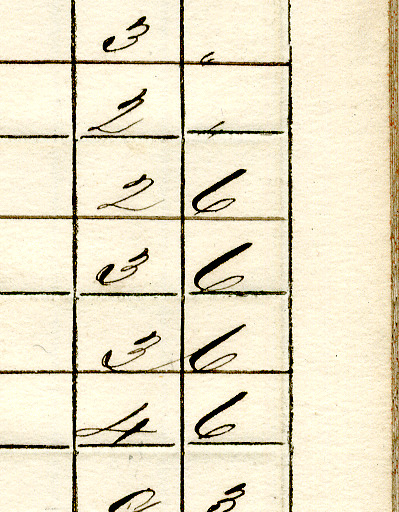 3 "
2 "
2 6
3 6
3 6
4 6
3